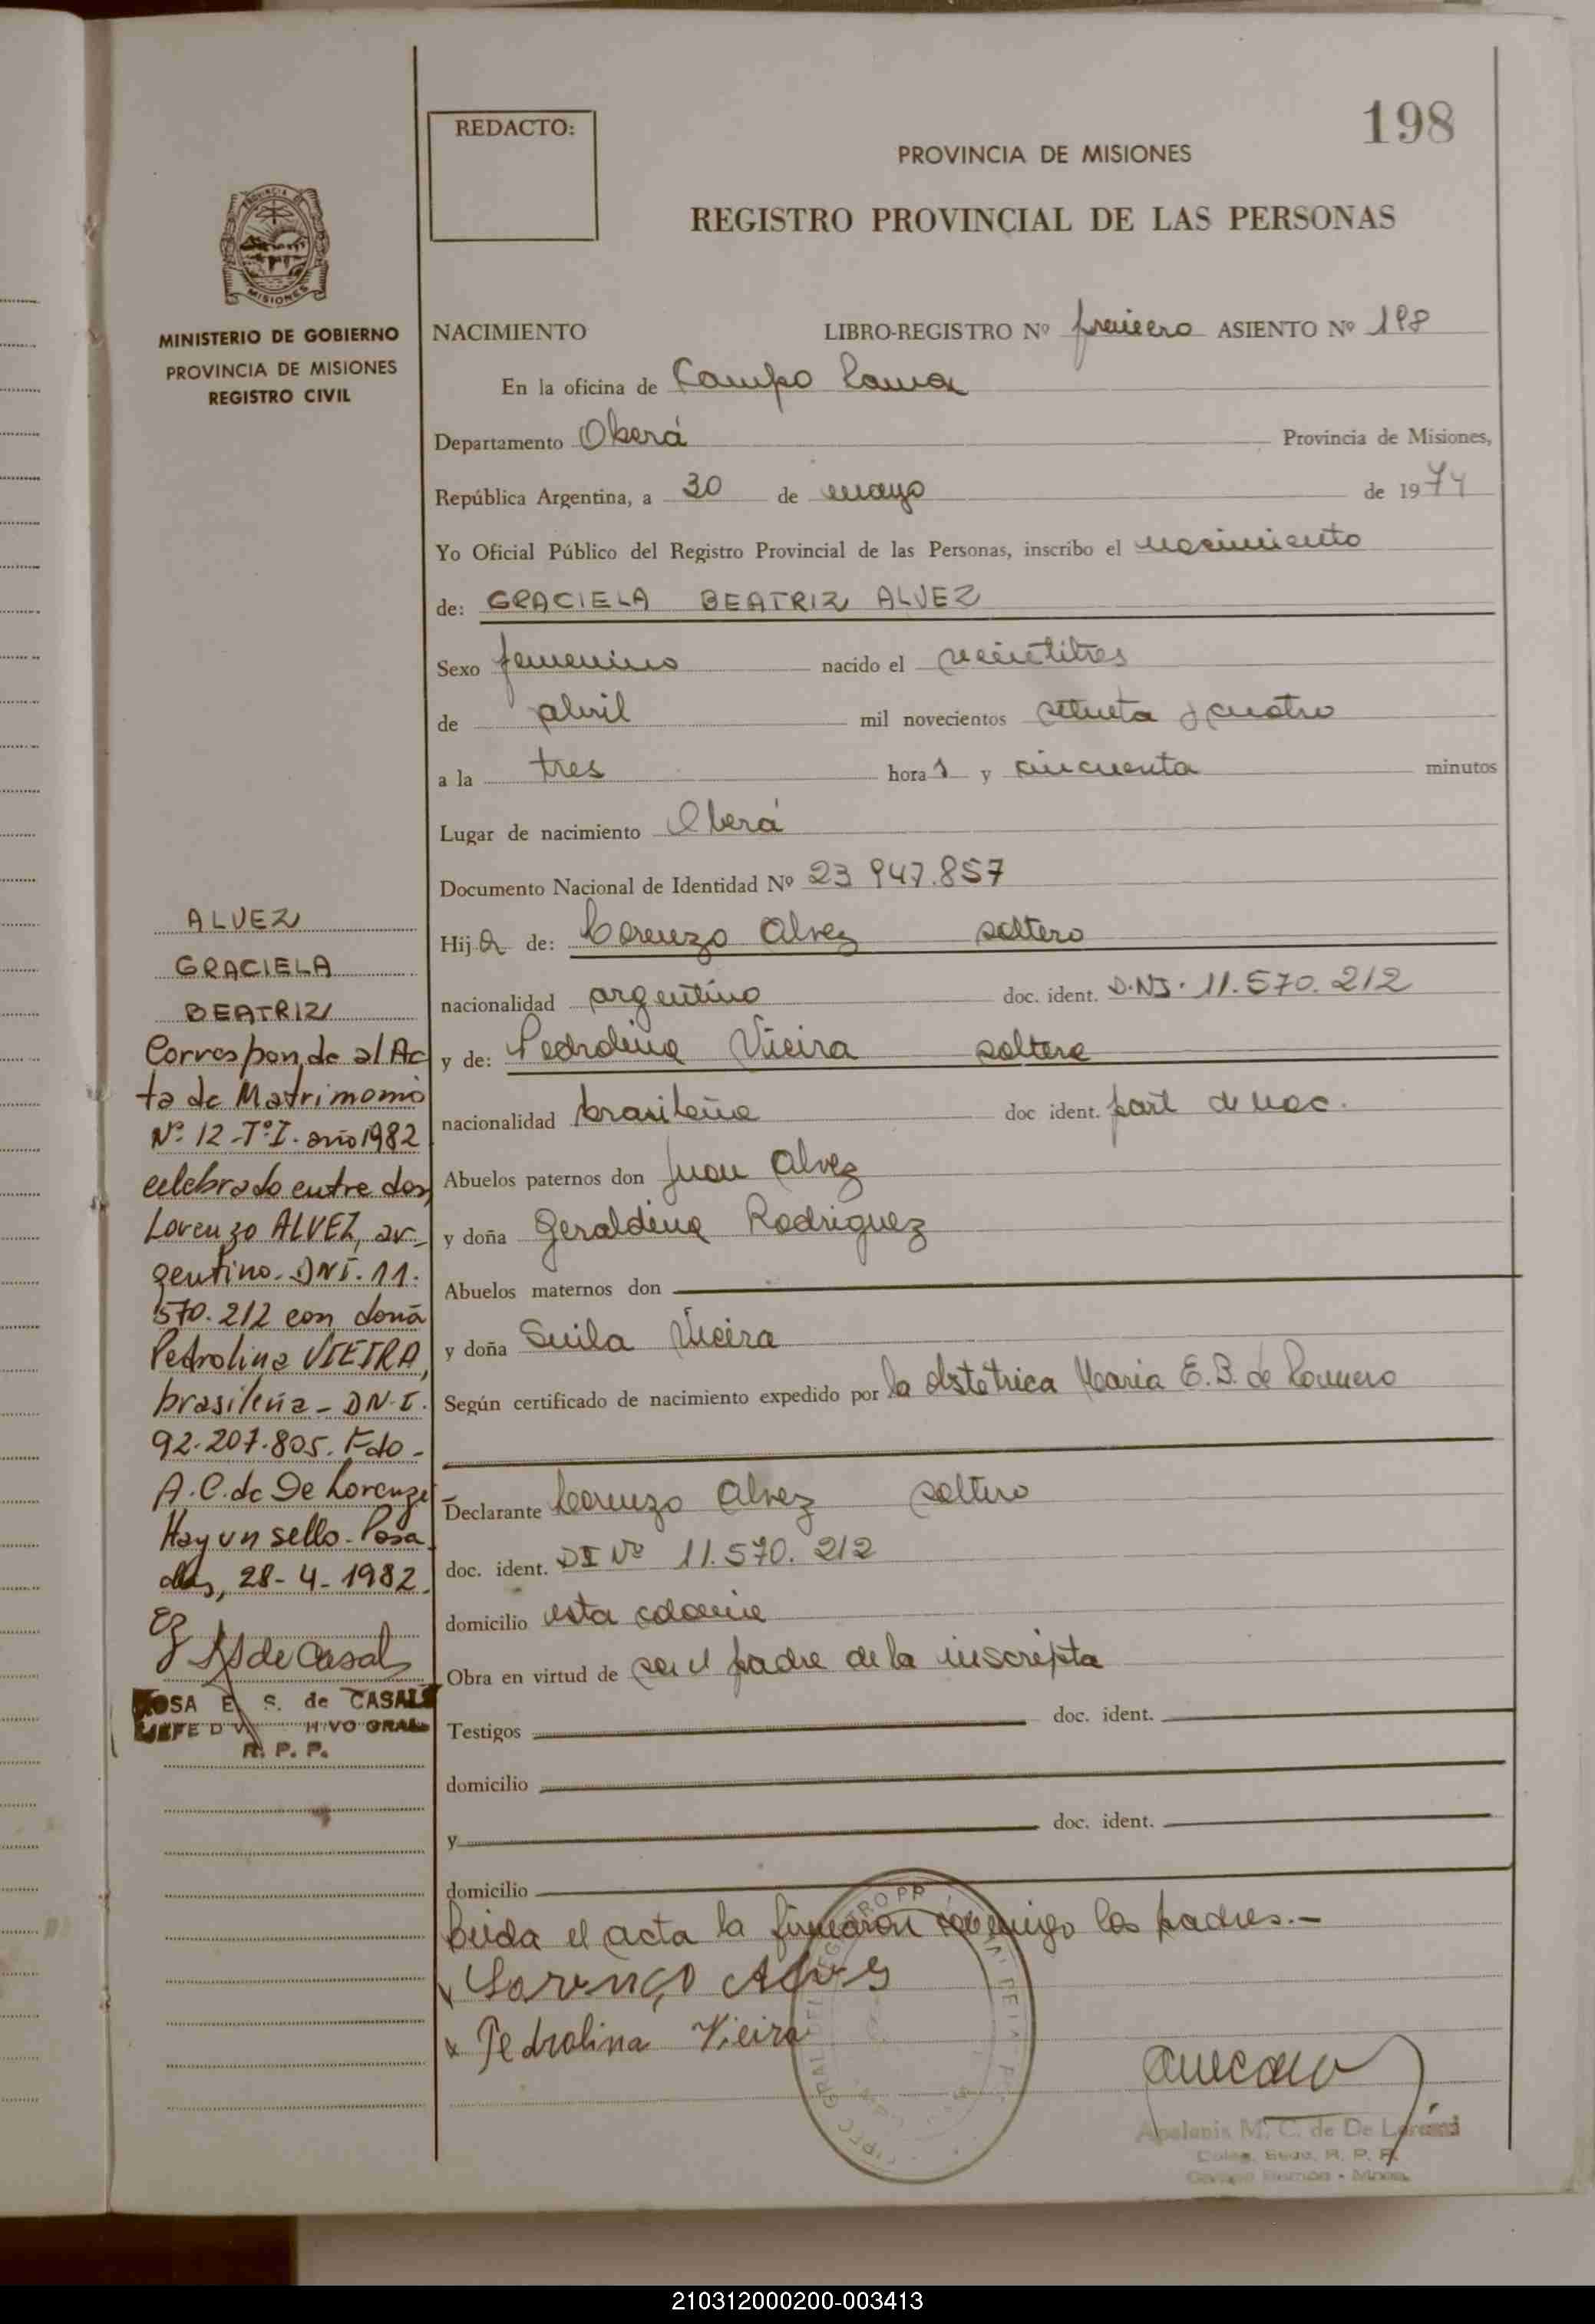 198
REDACTO:
PROVINCIA DE MISIONES
REGISTRO PROVINCIAL DE LAS PERSONAS
MISIONES
MINISTERIO DE GOBIERNO
PROVINCIA DE MISIONES
REGISTRO CIVIL
NACIMIENTO LIBRO-REGISTRO Nº primero ASIENTO Nº 198
En la oficina de Campo
Departamento Oberá Provincia de Misiones,
República Argentina, a 30 de mayo de 1974
Yo Oficial Público del Registro Provincial de las Personas, inscribo el nacimiento
de: GRACIELA BEATRIZ ALVEZ
Sexo femenino nacido el veintitres
de abril mil novecientos setenta y cuatro
a la tres hora s y cincuenta minutos
Lugar de nacimiento Oberá
Documento Nacional de Identidad Nº 23 947.857
Hij a de: Lorenzo Alvez soltero
nacionalidad argentino doc. ident. D.NI. 11.570.212
y de: Pedrolina Vieira soltera
nacionalidad brasileña doc ident. part de nac.
Abuelos paternos don Juan Alvez
y doña Geraldina Rodriguez
Abuelos maternos don
y doña Suila Vieira
Según certificado de nacimiento expedido por la obstétrica Maria E.B. de Romero
Declarante Lorenzo Alvez soltero
doc. ident. DI Nº 11.570.212
domicilio esta colonia
Obra en virtud de ser el padre de la inscripta
Testigos doc. ident.
domicilio
y doc. ident.
domicilio
Leida el acta la firmaron conmigo los padres.-
x Lorenço Alves
x Pedrolina Vieira
Apolonia M. C. de De Lorenzi
R. P. P.
ALVEZ
GRACIELA
BEATRIZ
Corresponde al Ac
ta de Matrimonio
Nº 12-Tº I. año 1982
celebrado entre don
Lorenzo ALVEZ, ar-
gentino-DNI. 11.
570.212 con doña
Pedrolina VIEIRA,
brasileña-DN.I.
92.207.805. Fdo-
A.C.de De Lorenzi
Hay un sello-Posa
das, 28-4-1982.
ROSA E. S. de CASALS
JEFE
R. P. P.
210312000200-003413